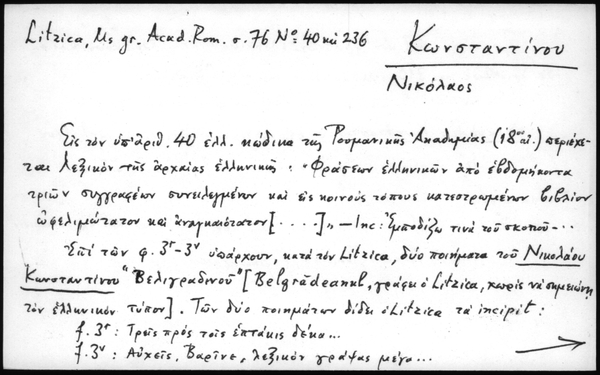 Litzica, Ms gr. Acad. Rom. σ. 76 Νο 40 και 236
Κωνσταντίνου
Νικόλαος
Εἰς τὸν ὑπ' ἀριθ. 40 ἑλλ. κώδικα τῆς Ρουμανικῆς Ἀκαδημίας (18ου αἰ.) περιέχε-
ται λεξικὸν τῆς ἀρχαίας ἑλληνικῆς: «Φράσεων ἑλληνικῶν ἀπὸ ἑβδομήκοντα
τριῶν συγγραφέων συνειλεγμένων καὶ εἰς κοινοὺς τόπους κατεστρωμένων βιβλίον
ὠφελιμώτατον καὶ ἀναγκαιότατον [....]» — Inc: Ἐμποδίζω τινὰ τοῦ σκοποῦ...
Ἐπὶ τῶν φ. 3r-3v ὑπάρχουν, κατὰ τὸν Litzica, δύο ποιήματα τοῦ Νικολάου
Κωνσταντίνου "Βελιγραδινοῦ" [Belgrădeanul, γράφει ὁ Litzica, χωρὶς νὰ σημειώνῃ
τὸν ἑλληνικὸν τύπον]. Τῶν δύο ποιημάτων δίδει ὁ Litzica τὰ incipit:
f. 3r: Τρεῖς πρὸς τοῖς ἑπτάκις δέκα...
f. 3v: Αὐχεῖς, Βαρῖνε, λεξικὸν γράψας μέγα...